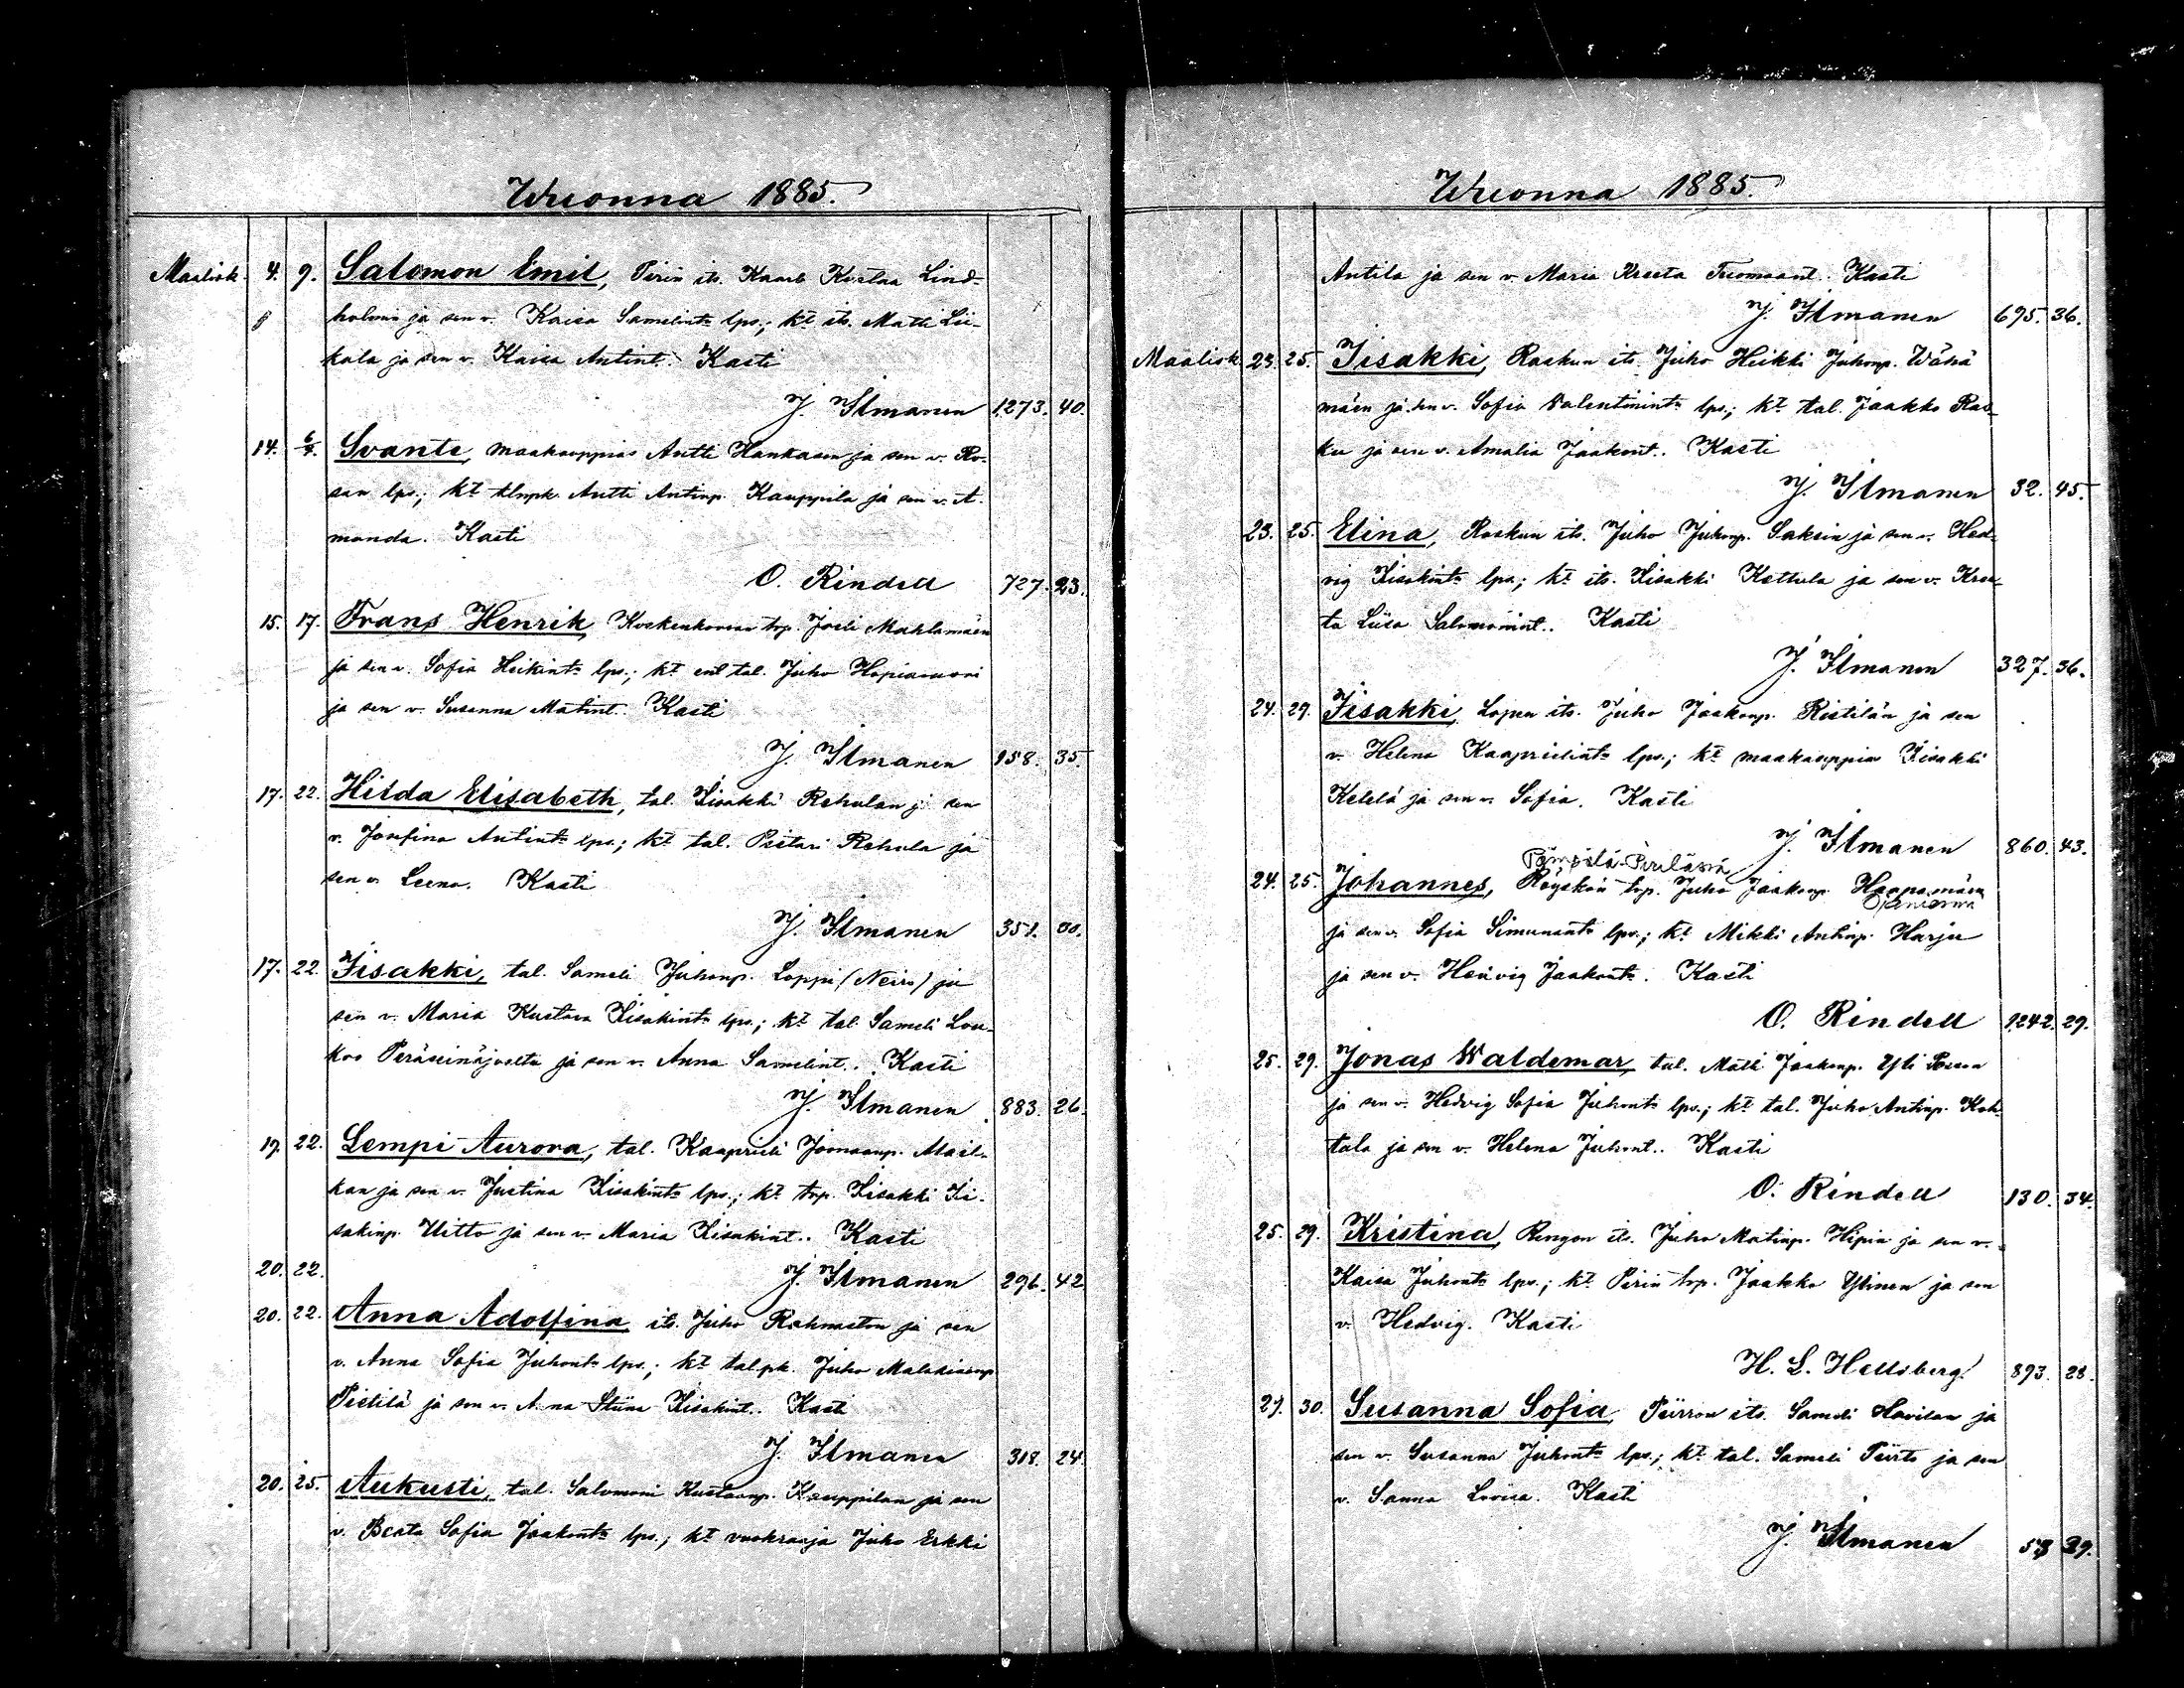 Wuonna 1885.
Maalisk. 4. 9. Salomon Emil, Pirin its. Kaarle Kustaa Lind-
holmin ja sen v. Kaisa Samelint. lps.; kt. its. Matti Lii-
kala ja sen v. Kaisa Antint. Kasti
J. Ilmanen 1273. 40.
14. 6/4. Svante, maakauppias Antti Hankasen ja sen v. Ro-
san lps.; kt. tlnpk. Antti Antinp. Kauppila ja sen v. A-
manda. Kasti
O. Rindell 727. 23.
15. 17. Frans Henrik, Koskenkorvan trp. Joeli Mahlamäen
ja sen v. Sofia Heikint. lps.; kt. ent. tal. Juho Hopiavuori
ja sen v. Susanna Matint. Kasti
J. Ilmanen 958. 35.
17. 22. Hilda Elisabeth, tal. Iisakki Rehulan ja sen
v. Josefina Antint. lps.; kt. tal. Pietari Rehula ja
sen v. Leena. Kasti
J. Ilmanen 351. 00.
17. 22. Iisakki, tal. Sameli Juhonp. Loppi (Neiro) ja
sen v. Maria Kustava Iisakint. lps.; kt. tal. Sameli Lou-
koo Peräseinäjoelta ja sen v. Anna Samelint.. Kasti
J. Ilmanen 883. 26.
19. 22. Lempi Aurora, tal. Kaaprieli Joonaanp. Mail-
kan ja sen v. Justina Iisakint. lps.; kt. trp. Iisakki Ii-
sakinp. Uitto ja sen v. Maria Iisakint.. Kasti
20. 22. J. Ilmanen 296. 42
20. 22. Anna Adolfina its. Juho Rahnaston ja sen
v. Anna Sofia Juhont. lps.; kt. tal.pk. Juho Malakiaanp.
Pistilä ja sen v. Anna Stiina Iisakint.. Kasti
J. Ilmanen 318. 24.
20. 25. Aukusti, tal. Salomoni Kustaanp. Kauppilan ja sen
v. Beata Sofia Jaakont. lps.; kt. vuokraaja Juho Erkki
Wuonna 1885.
Antila ja sen v. Maria Kreeta Tuomaant.. Kasti
J. Ilmanen 695. 36.
Maalisk. 23. 25. Iisakki, Raskun its. Juho Heikki Juhonp. Wähä
mäen ja sen v. Sofia Valentinint. lps.; kt. tal. Jaakko Ras-
ku ja sen v. Amalia Jaakont.. Kasti
J. Ilmanen 32. 45.
23. 25. Elina, Raskun its. Juho Juhonp. Saksin ja sen v. Hed-
vig Iisakint. lps.; kt. its. Iisakki Kettula ja sen v. Kree-
ta Liisa Salomonint.. Kasti
J. Ilmanen 327. 36.
24. 29. Iisakki, Lopen its. Juho Jaakonp. Ristilän ja sen
v. Helena Kaaprielint. lps.; kt. maakauppias Iisakki
Ketelä ja sen v. Sofia. Kasti
J. Ilmanen 860. 43.
24. 25. Johannes, Röyskön trp. Juho Jaakonp. Haapamäen
ja sen v. Sofia Simunant. lps.; kt. Mikki Antinp. Harju
ja sen v. Hedvig Jaakont.. Kasti
O. Rindell 1242. 29.
25. 29. Jonas Waldemar, tal. Matti Jaakonp. Yli
ja sen v. Hedvig Sofia Juhont. lps.; kt. tal. Juho Antinp. Koh-
tala ja sen v. Helena Juhont.. Kasti
O. Rindell 130. 34.
25. 29. Kristina, Rengon its. Juho Matinp. Hipin ja sen v.
Kaisa Juhont. lps.; kt. Pirin trp. Jaakko Ylinen ja sen
v. Hedvig. Kasti
H. L. Hellsberg. 893. 28.
27. 30. Susanna Sofia, Piirron its. Sameli Havilan ja
sen v. Susanna Juhont. lps.; kt. tal. Sameli Piirto ja sen
v. Sanna Loviisa. Kasti
J. Ilmanen 39.